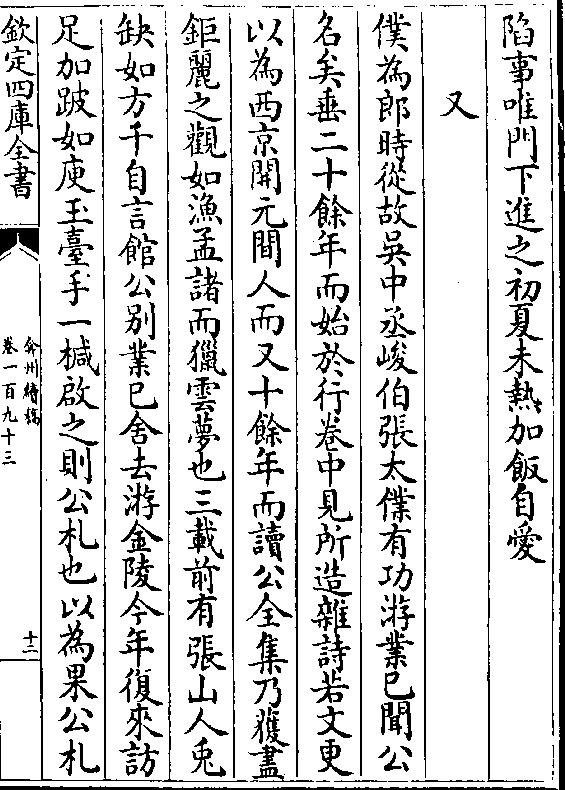 陷事唯門下進之初夏未熱加飯自愛
又
僕為郎時從故吳中丞峻伯張太僕有功游業已聞公
名矣垂二十餘年而始於行卷中見所造雜詩若文更
以為西京開元間人而又十餘年而讀公全集乃獲盡
鉅麗之觀如漁孟諸而獵雲夢也三載前有張山人兎
缺如方千自言館公别業已舍去游金陵今年復來訪
足加跛如庾玉臺手一椷啟之則公札也以為果公札
欽定四庫全書
弇州續稿
卷一百九十三
十二